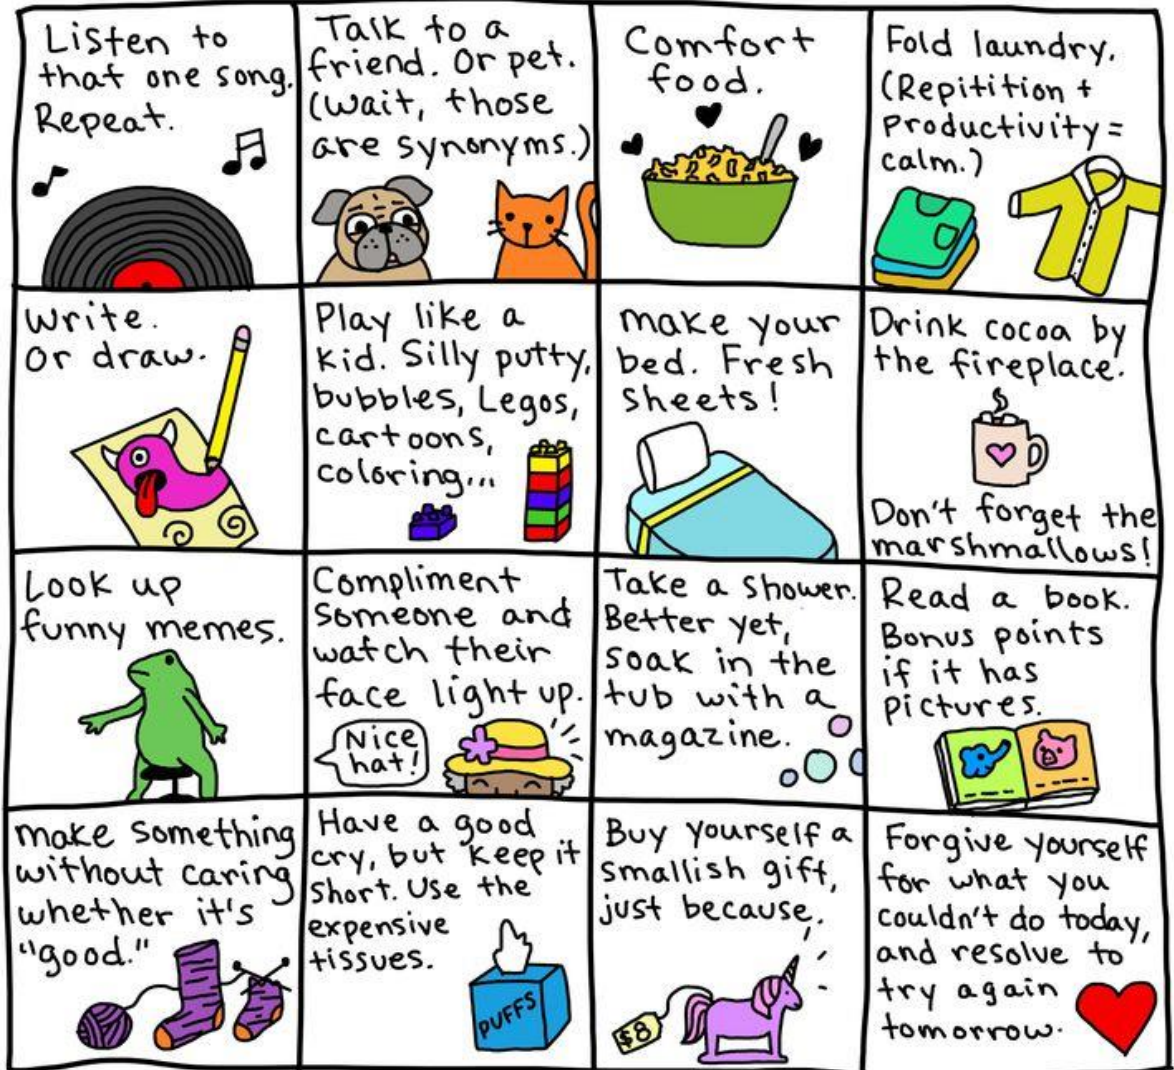 Listen to
that one song.
Repeat.
Talk to a
friend. Or pet.
(wait, those
are synonyms.)
Comfort
food.
Fold laundry.
(Repitition +
Productivity =
calm.)
Write.
Or draw.
Play like a
kid. Silly putty,
bubbles, Legos,
cartoons,
coloring...
make your
bed. Fresh
sheets!
Drink cocoa by
the fireplace.
Don't forget the
marshmallows!
Look up
funny memes.
Compliment
someone and
watch their
face light up.
Nice
hat!
Take a shower.
Better yet,
soak in the
tub with a
magazine.
Read a book.
Bonus points
if it has
pictures.
make something
without caring
whether it's
"good."
Have a good
cry, but keep it
short. Use the
expensive
tissues.
PUFFS
Buy yourself a
smallish gift,
just because.
$8
Forgive yourself
for what you
couldn't do today,
and resolve to
try again
tomorrow.